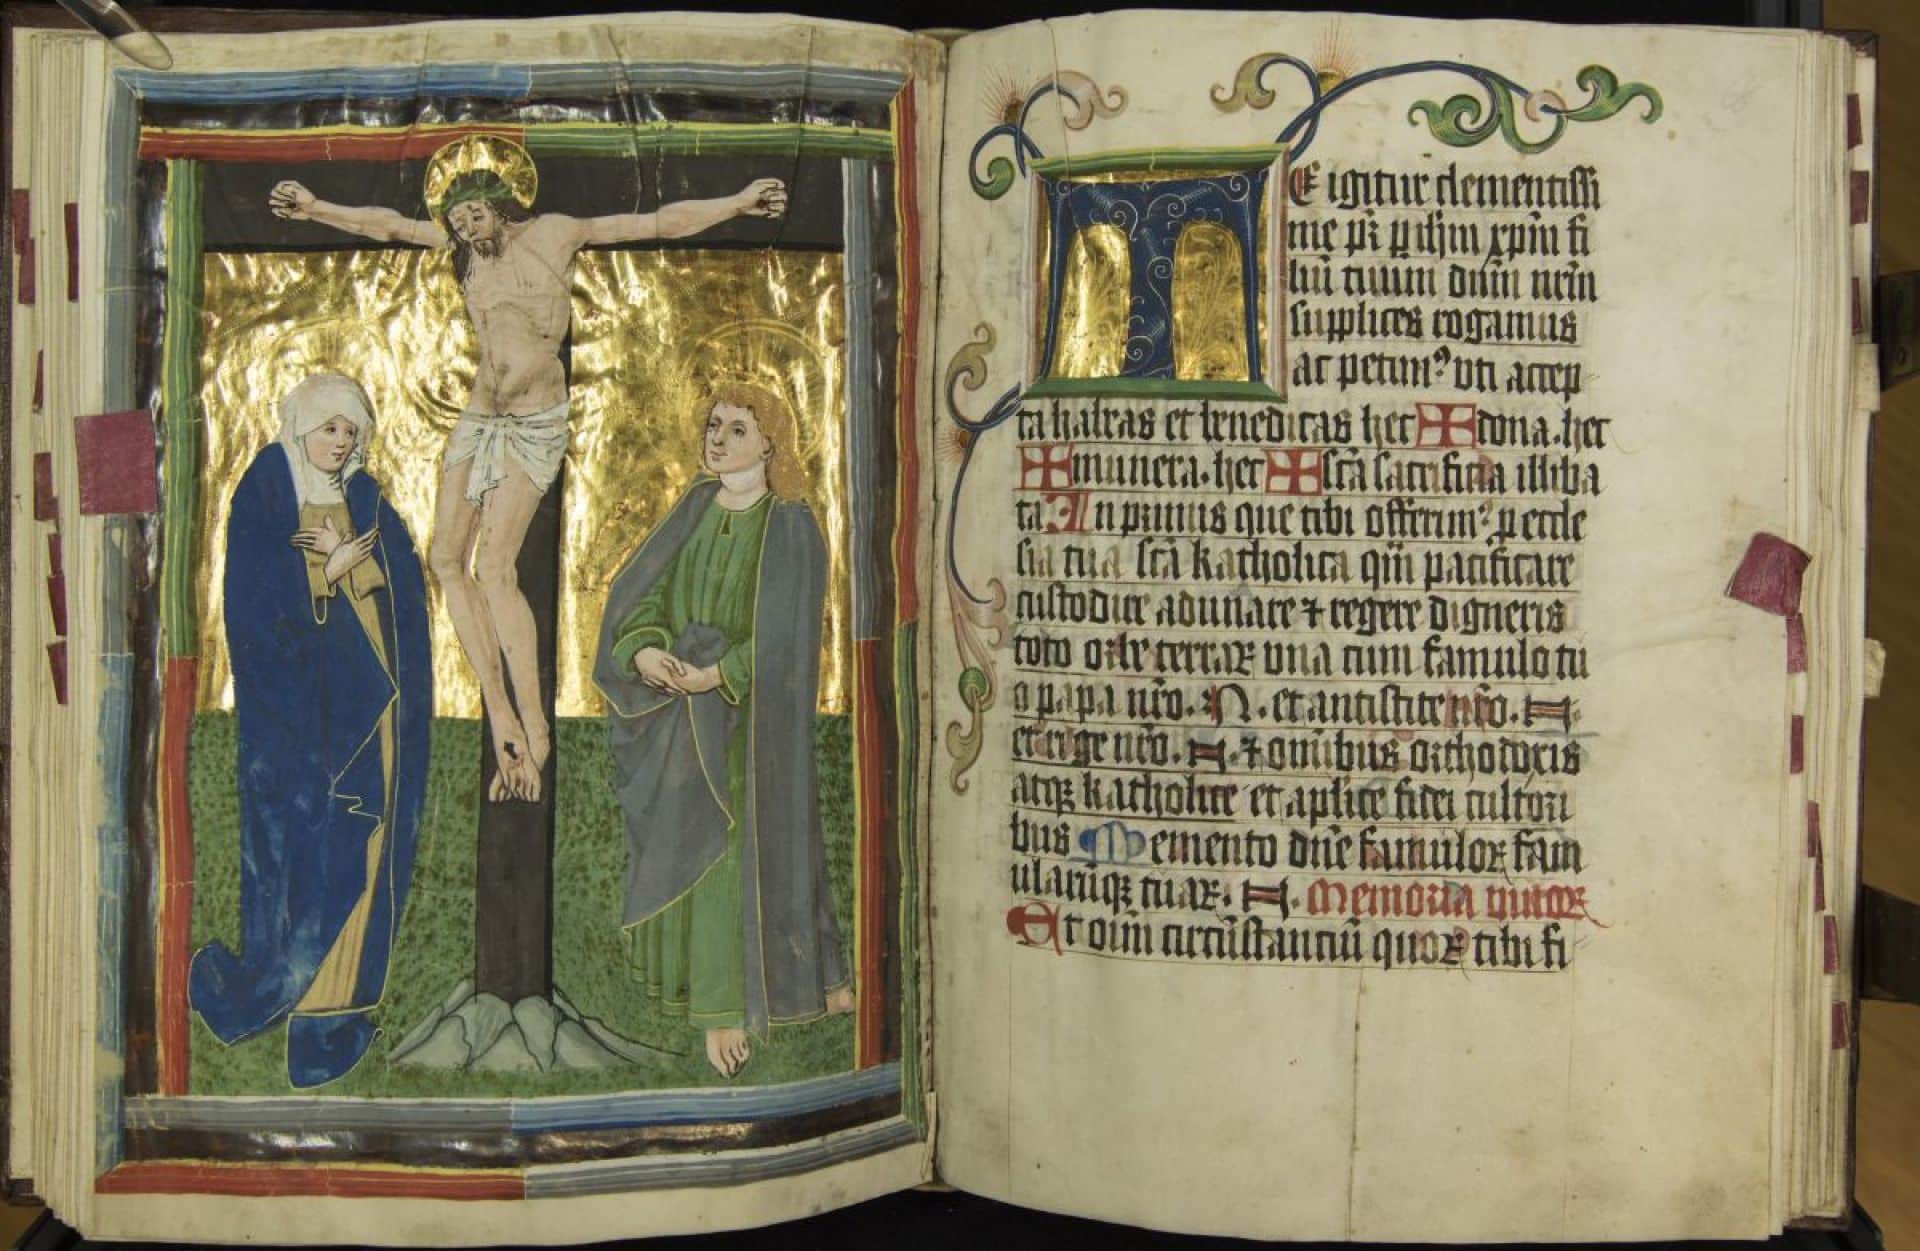 TE igitur clementissi
me pr̄ p ih̄m xp̄m fi
liū tuum dn̄m nr̄m
supplices rogamus
ac petimꝰ vti accep
ta habeas et benedicas hec ✠ dona. hec
✠ munera. hec ✠ sc̄a sacrificia illiba
ta In primis que tibi offerimꝰ ꝓ eccle
sia tua sc̄a katholica qm̄ pacificare
custodire adunare ⁊ regere digneris
toto orbe terraꝝ vna cum famulo tu
o papa nr̄o. N. et antistite nr̄o. N.
et rege nr̄o. N. ⁊ om̄ibus orthodoxis
atqꝫ katholice et aplice fidei cultori
bus Memento dn̄e famuloꝝ fam
ularūqꝫ tuaꝝ. N. Memoria viuoꝝ
Et oīm circūstanciū quoꝝ tibi fi